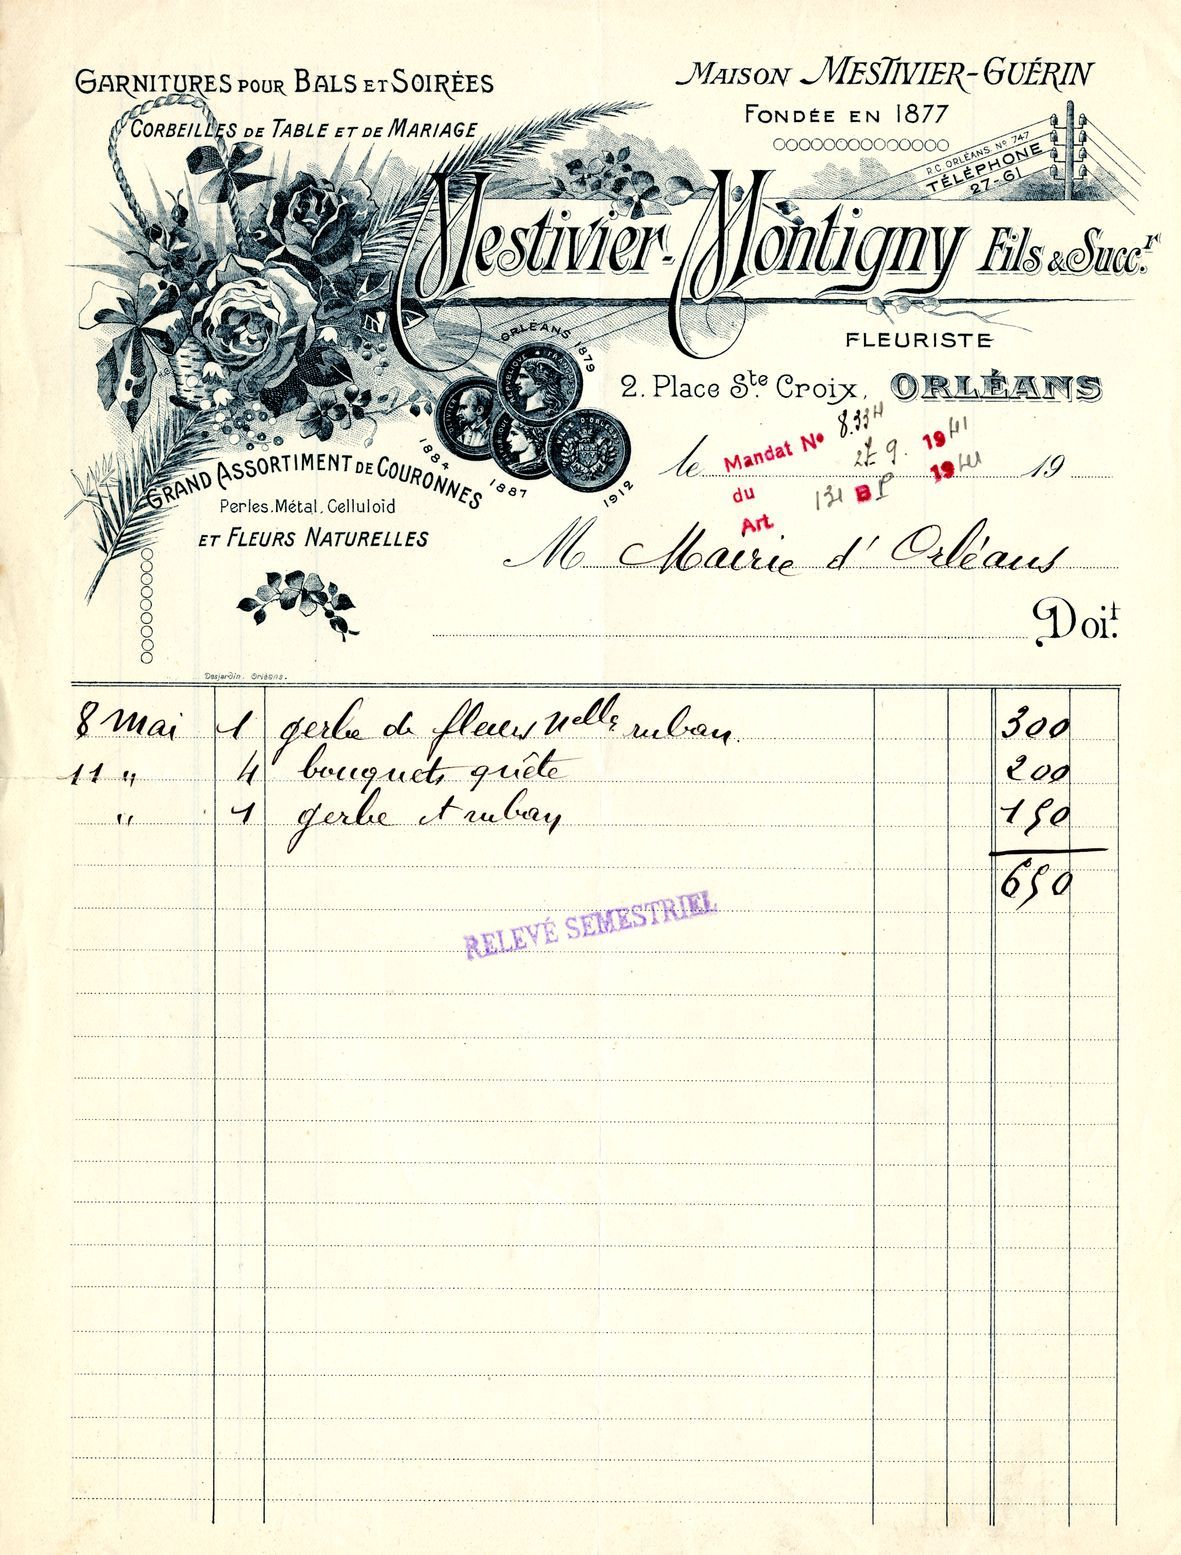 GARNITURES POUR BALS ET SOIRÉES
CORBEILLES DE TABLE ET DE MARIAGE
MAISON MESTIVIER-GUÉRIN
FONDÉE EN 1877
R.C. ORLÉANS Nº 747
TÉLÉPHONE
27-61
Mestivier-Montigny Fils & Succ.r
FLEURISTE
2. Place Ste Croix, ORLÉANS
ORLÉANS 1879
1884
1887
1912
GRAND ASSORTIMENT DE COURONNES
Perles. Métal. Celluloïd
ET FLEURS NATURELLES
le 19
Mandat Nº 8.334 1941
du 27 9. 1941
Art. 131 BP
M Mairie d'Orléans
Doit.
Desjardin. Orléans.
8 Mai 1 gerbe de fleurs nelles ruban. 300
11 " 4 bouquets quête 200
" 1 gerbe et ruban 150
650
RELEVÉ SEMESTRIEL